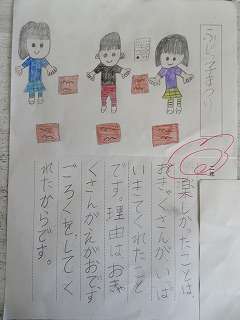 まつり
楽しかったことは、
おきゃくさんがいっぱ
いきてくれたこと
です。理由は、おきゃ
くさんがえがおで、す
ごろくをしてく
れたからです。